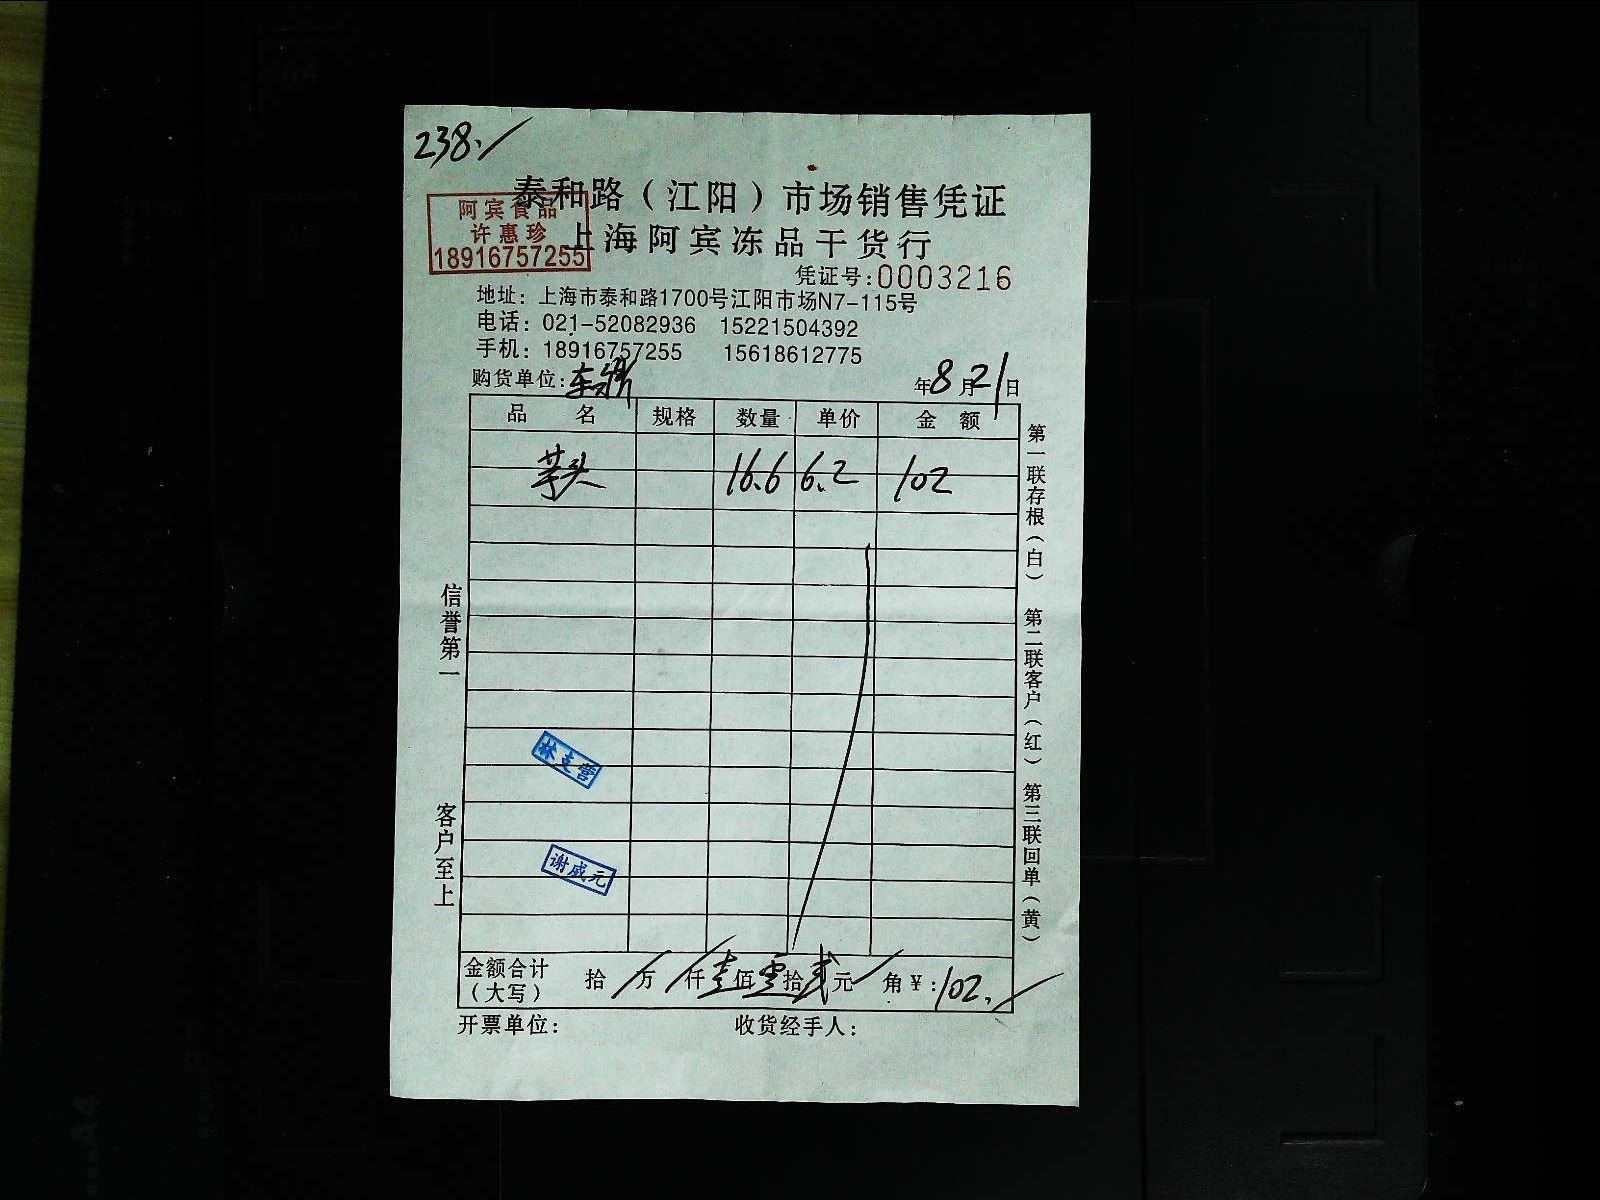 238.
泰和路（江阳）市场销售凭证
阿宾食品
许惠珍
18916757255
上海阿宾冻品干货行
凭证号:0003216
地址：上海市泰和路1700号江阳市场N7-115号
电话：021-52082936 15221504392
手机：18916757255 15618612775
购货单位: 年8月21日
品 名 规格 数量 单价 金 额
芋头 16.6 6.2 102
第一联存根（白） 第二联客户（红） 第三联回单（黄）
信誉第一
客户至上
林支营
谢威元
金额合计（大写） 拾 万 仟 壹佰 零拾 贰元 角 ￥:102.
开票单位: 收货经手人: